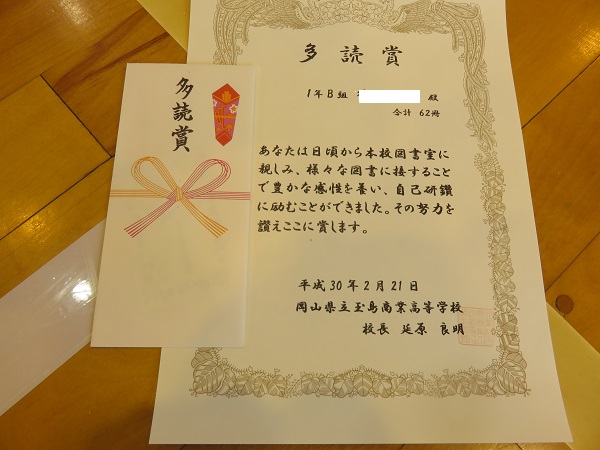 多読賞
多読賞
1年B組
殿
合計 62冊
あなたは日頃から本校図書室に
親しみ、様々な図書に接すること
で豊かな感性を養い、自己研鑽
に励むことができました。その努力を
讃えここに賞します。
平成30年2月21日
岡山県立玉島商業高等学校
校長 延原 良明